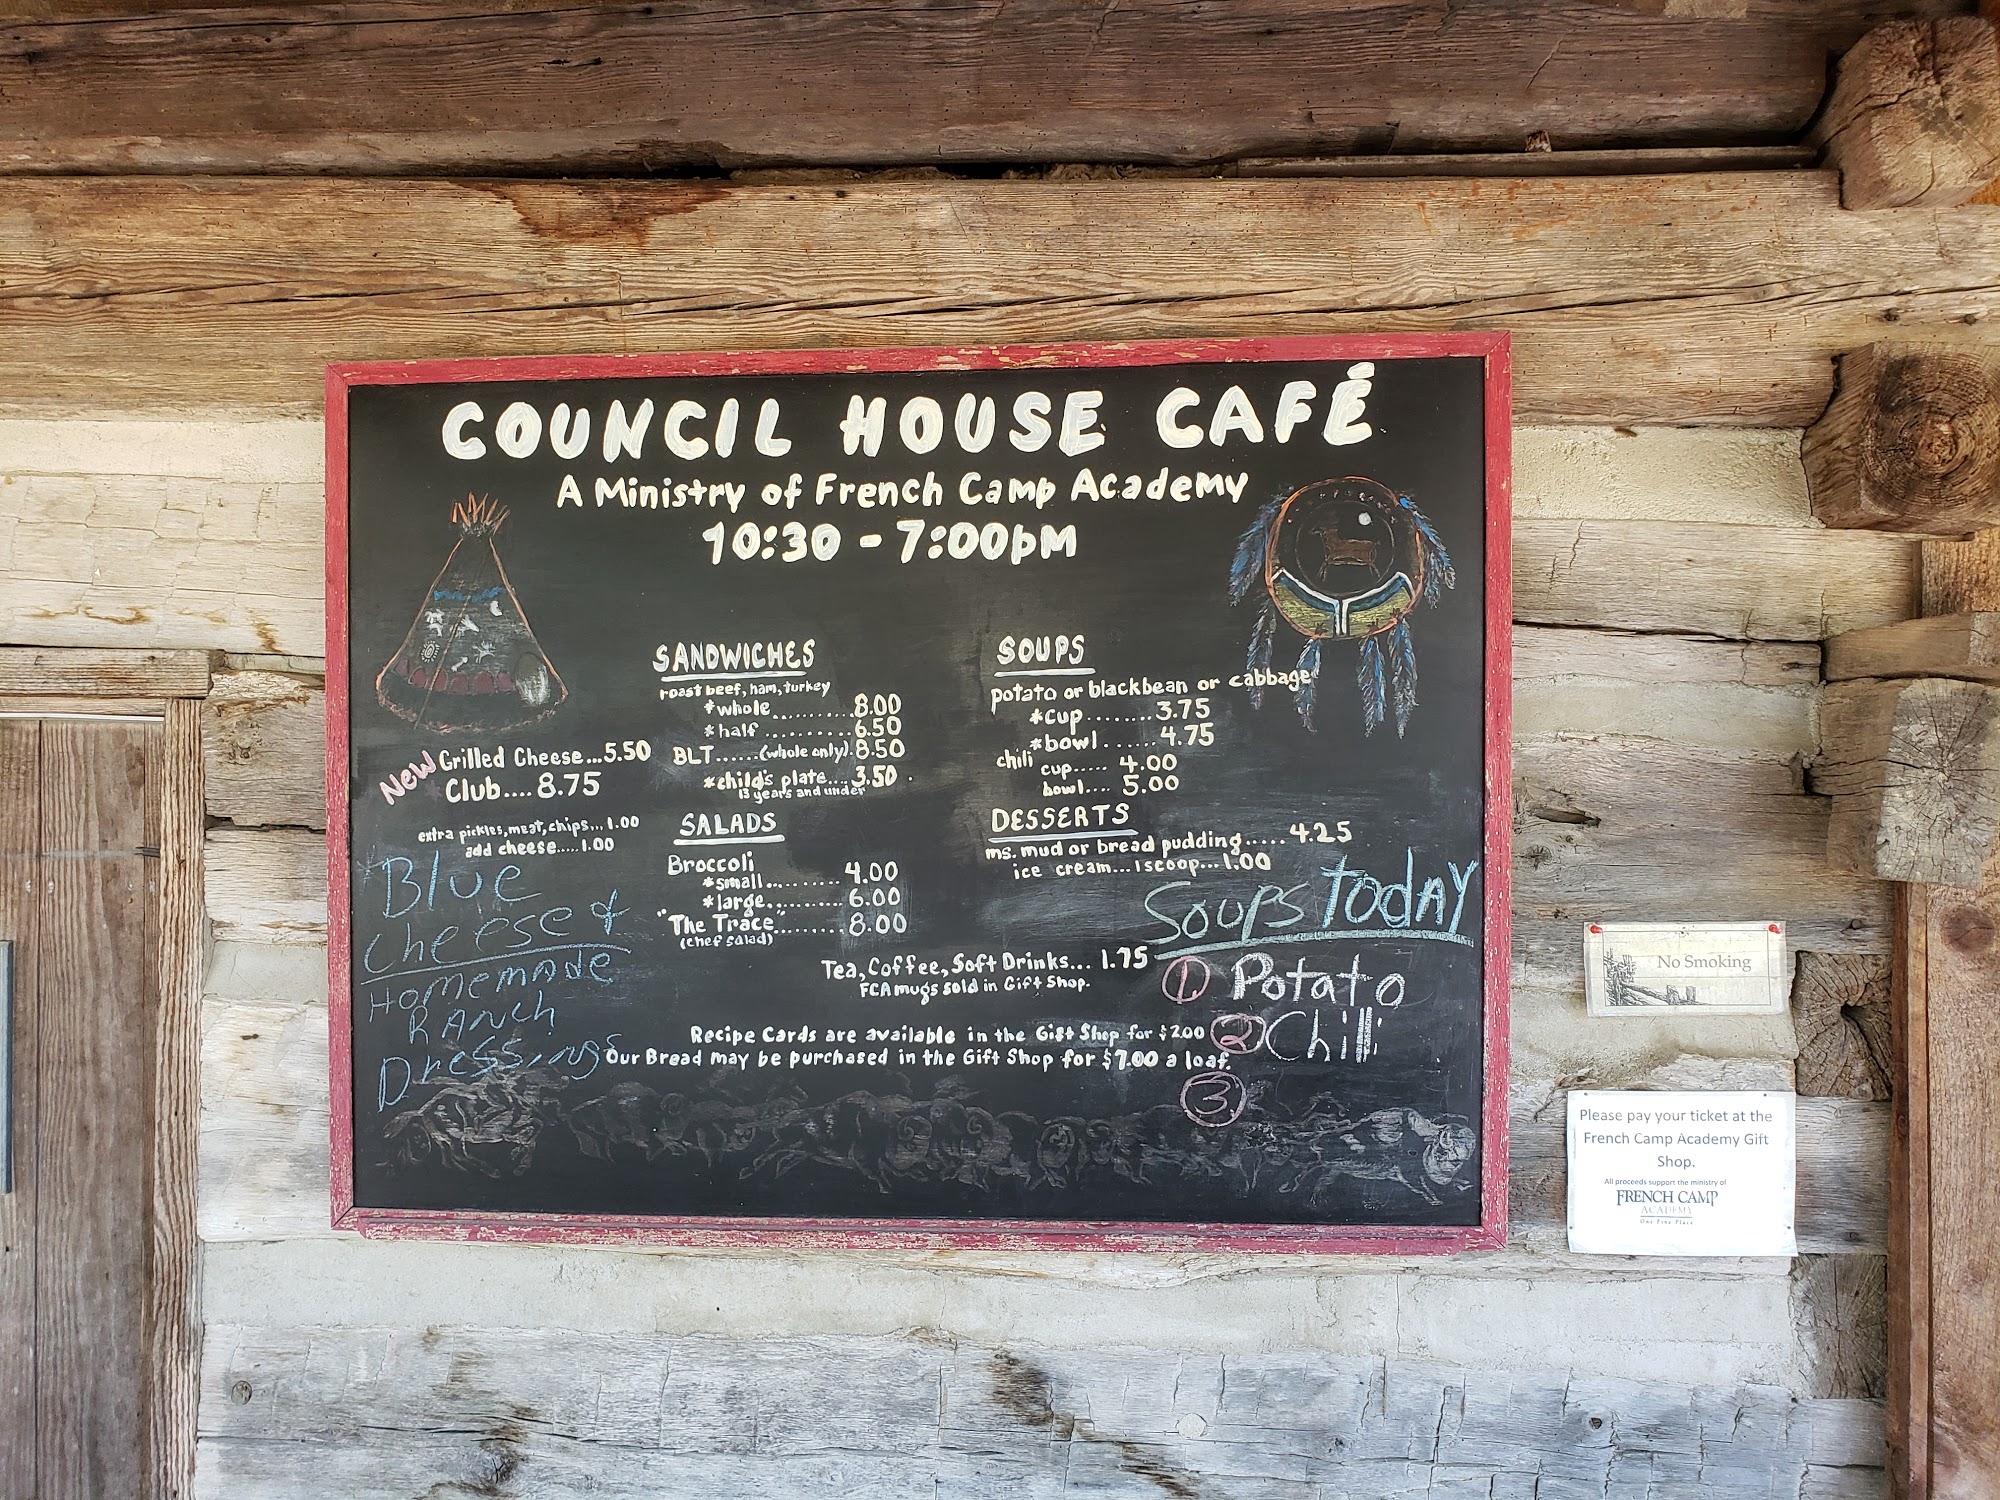 COUNCIL HOUSE CAFÉ
A Ministry of French Camp Academy
10:30 - 7:00pm
SANDWICHES
roast beef, ham, turkey
*whole...........8.00
*half ..........6.50
BLT......(whole only).8.50
*child's plate....3.50
13 years and under
New Grilled Cheese...5.50
Club....8.75
extra pickles, meat, chips...1.00
add cheese.....1.00
SALADS
Broccoli
*small.......... 4.00
*large.......... 6.00
"The Trace"......... 8.00
(chef salad)
SOUPS
potato or blackbean or cabbage
*cup........3.75
*bowl.......4.75
chili
cup..... 4.00
bowl.... 5.00
DESSERTS
ms. mud or bread pudding..... 4.25
ice cream...1scoop...1.00
Tea, Coffee, Soft Drinks... 1.75
FCA mugs sold in Gift Shop.
Recipe Cards are available in the Gift Shop for $2.00
Our Bread may be purchased in the Gift Shop for $7.00 a loaf.
Blue
Cheese &
Homemade
RANch
Dressings
Soups TODAY
1 Potato
2 Chili
3
No Smoking
Please pay your ticket at the
French Camp Academy Gift
Shop.
All proceeds support the ministry of
FRENCH CAMP
ACADEMY
One Fine Place